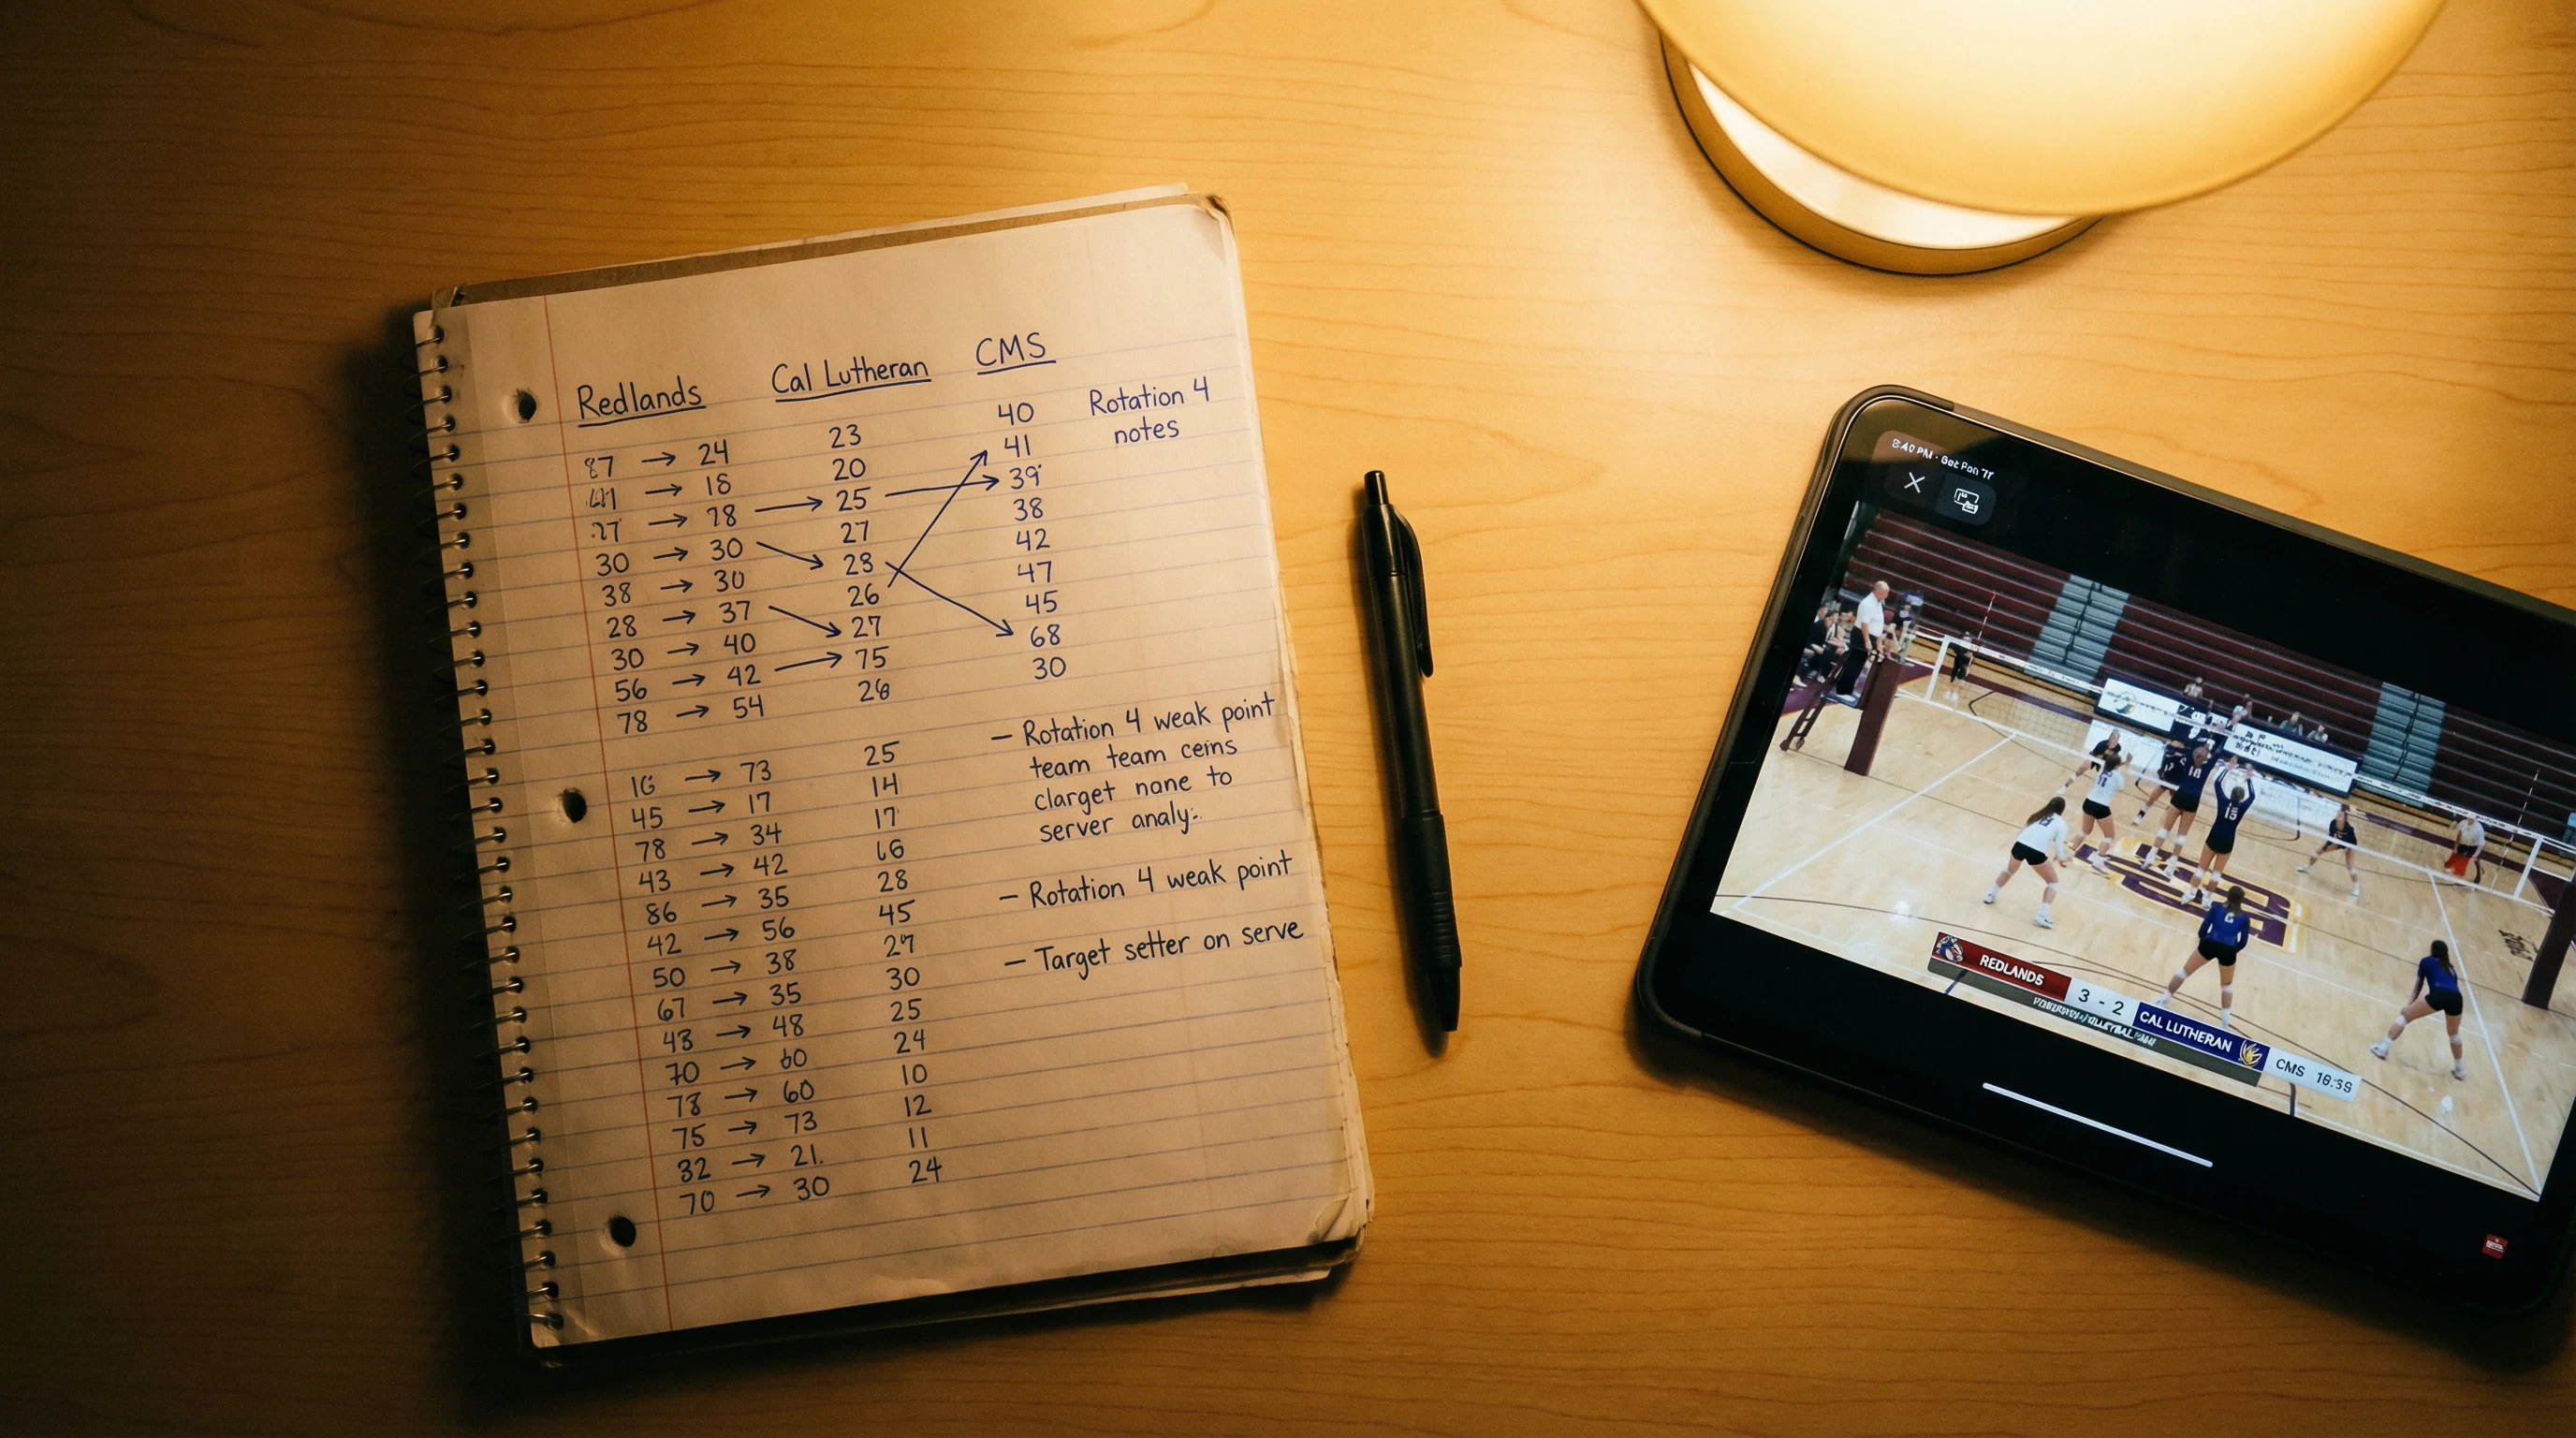 Redlands Cal Lutheran CMS
Rotation 4
notes
87 → 24 23 40
→ 18 20 41
27 → 28 → 25 → 39
30 → 30 27 38
38 → 30 23 42
28 → 37 26 47
30 → 40 27 45
56 → 42 → 75 68
78 → 54 26 30
16 → 73 25
45 → 17 14
78 → 34 17
43 → 42 16
86 → 35 28
42 → 56 45
50 → 38 27
67 → 35 30
43 → 48 25
70 → 60 24
78 → 60 10
75 → 73 12
32 → 21. 11
70 → 30 24
– Rotation 4 weak point
team team ceins
clarget nane to
server analy:.
– Rotation 4 weak point
– Target setter on serve
8:40 PM
15
REDLANDS 3 - 2 CAL LUTHERAN CMS 16:39